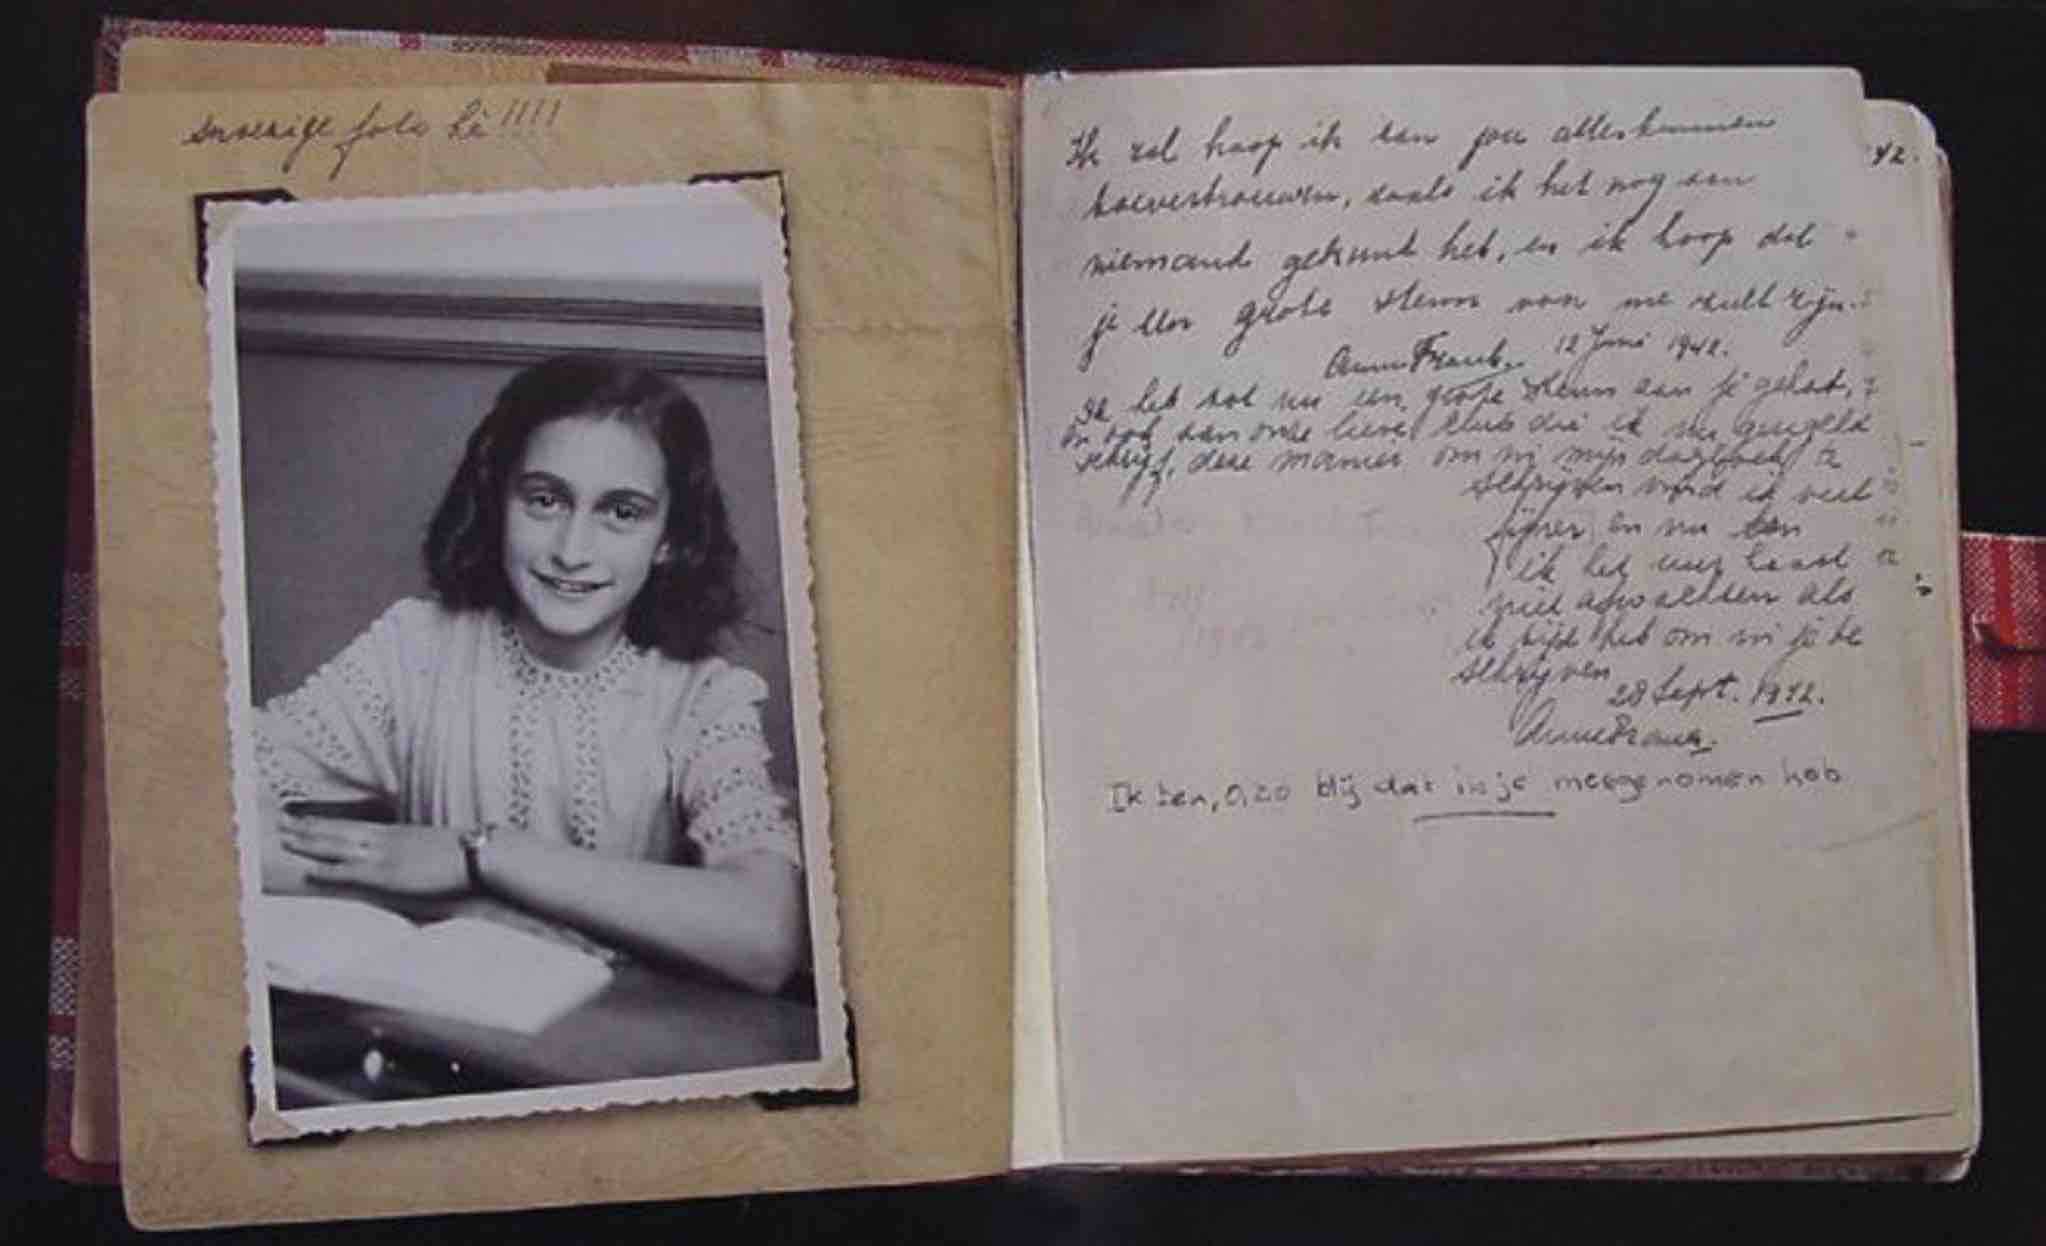 snoezige foto hè!!!!
Ik zal hoop ik aan jou alles kunnen
toevertrouwen, zoals ik het nog aan
niemand gekunt heb, en ik hoop dat
je een grote steun van me zult zijn.
Anne Frank. 12 Juni 1942.
Ik heb tot nu een grote steun aan je gehad,
en ook aan onze lieve club die ik nu geregeld
schrijf, deze manier om in mijn dagboek te
schrijven vind ik veel
fijner en nu kan
ik het uur haast
niet afwachten als
ik tijd heb om in je te
schrijven
28 Sept. 1942.
Anne Frank.
Ik ben, O, zo blij dat ik je meegenomen heb
42.